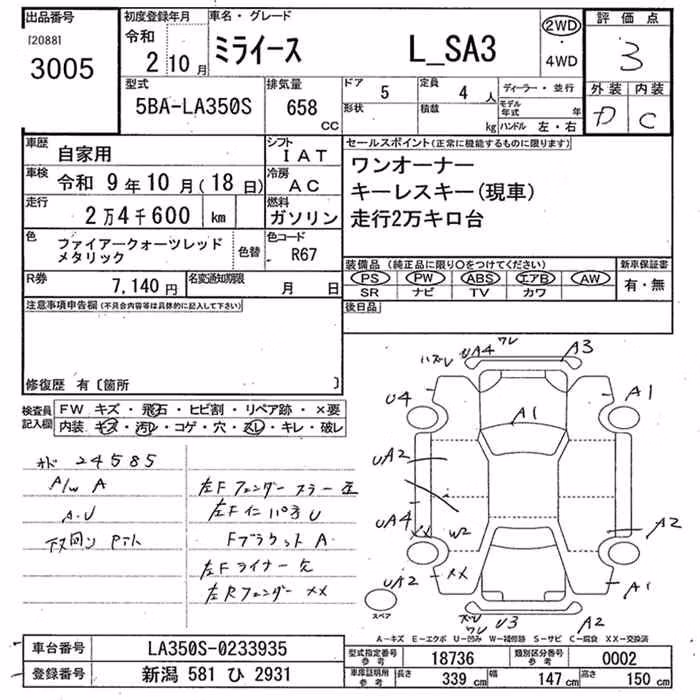 出品番号
[2088]
3005
初度登録年月
令和
2 10月
車名・グレード
ミライース L_SA3
2WD
・
4WD
評価点
3
外装 内装
D C
型式
5BA-LA350S
排気量
658 cc
ドア 5
形状
定員 4 人
積載 kg
ディーラー・並行
モデル年式 年
ハンドル 左・右
車歴 自家用
車検 令和 9年 10月(18日)
走行 2万4千600 km
シフト IAT
冷房 AC
燃料 ガソリン
色 ファイアークォーツレッド
メタリック
色替
色コード R67
R券 7,140円
名変通知期限 月 日
セールスポイント(正常に機能するものに限ります)
ワンオーナー
キーレスキー(現車)
走行2万キロ台
装備品 (純正品に限り○をつけてください)
PS PW ABS エアB AW
SR ナビ TV カワ
新車保証書
有・無
後日品
注意事項申告欄(不具合内容等は具体的に記入して下さい)
修復歴 有〔箇所 〕
検査員
記入欄
FW キズ・飛石・ヒビ割・リペア跡・×要
内装 キズ・汚レ・コゲ・穴・スレ・キレ・破レ
24585
A/W A
A.U
左Fフェンダー
左F U
Fブラケット A
左Fライナー欠
左Rフェンダー XX
ワレ
ハズレ UA4 A3
U4 A1
A1
UA2
UA4 XX W2 A2
XX
UA2 A1
スペア
U3 A2
ワレ
A-キズ E-エクボ U-凹み W-補修跡 S-サビ C-腐食 XX-交換済
車台番号 LA350S-0233935
登録番号 新潟 581 ひ 2931
型式指定番号
参考
18736
類別区分番号
参考
0002
車庫証明用
参考
長さ 339 cm 幅 147 cm 高さ 150 cm